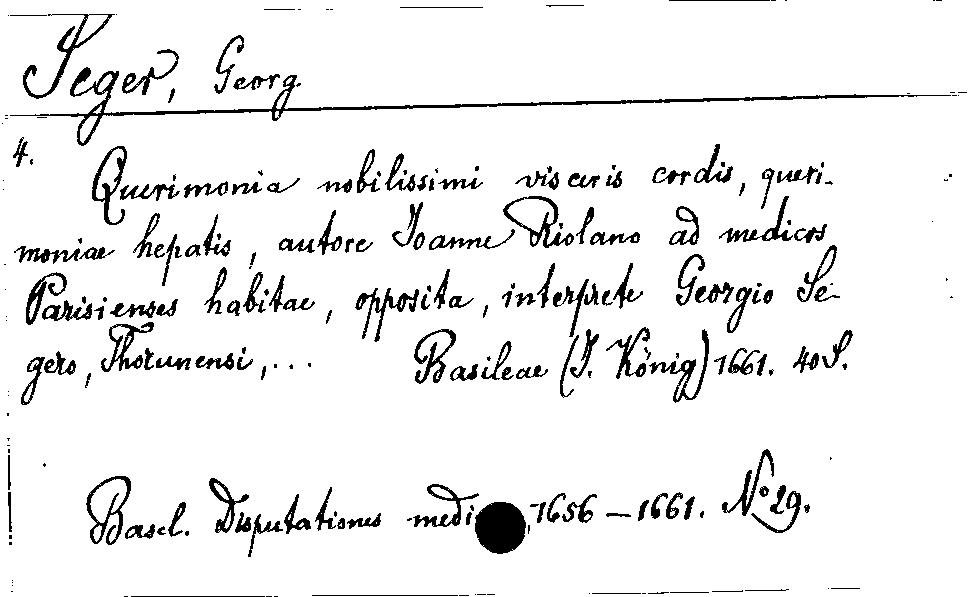 Seger, Georg
4.
Querimonia nobilissimi visceris cordis, queri-
moniae hepatis, autore Joanne Riolano ad medicos
Parisienses habitae, opposita, interprete Georgio Se-
gero, Thorunensi, ... Basileae (J. König) 1661. 40 S.
Basel. Disputationes medi 1656 – 1661. No 29.